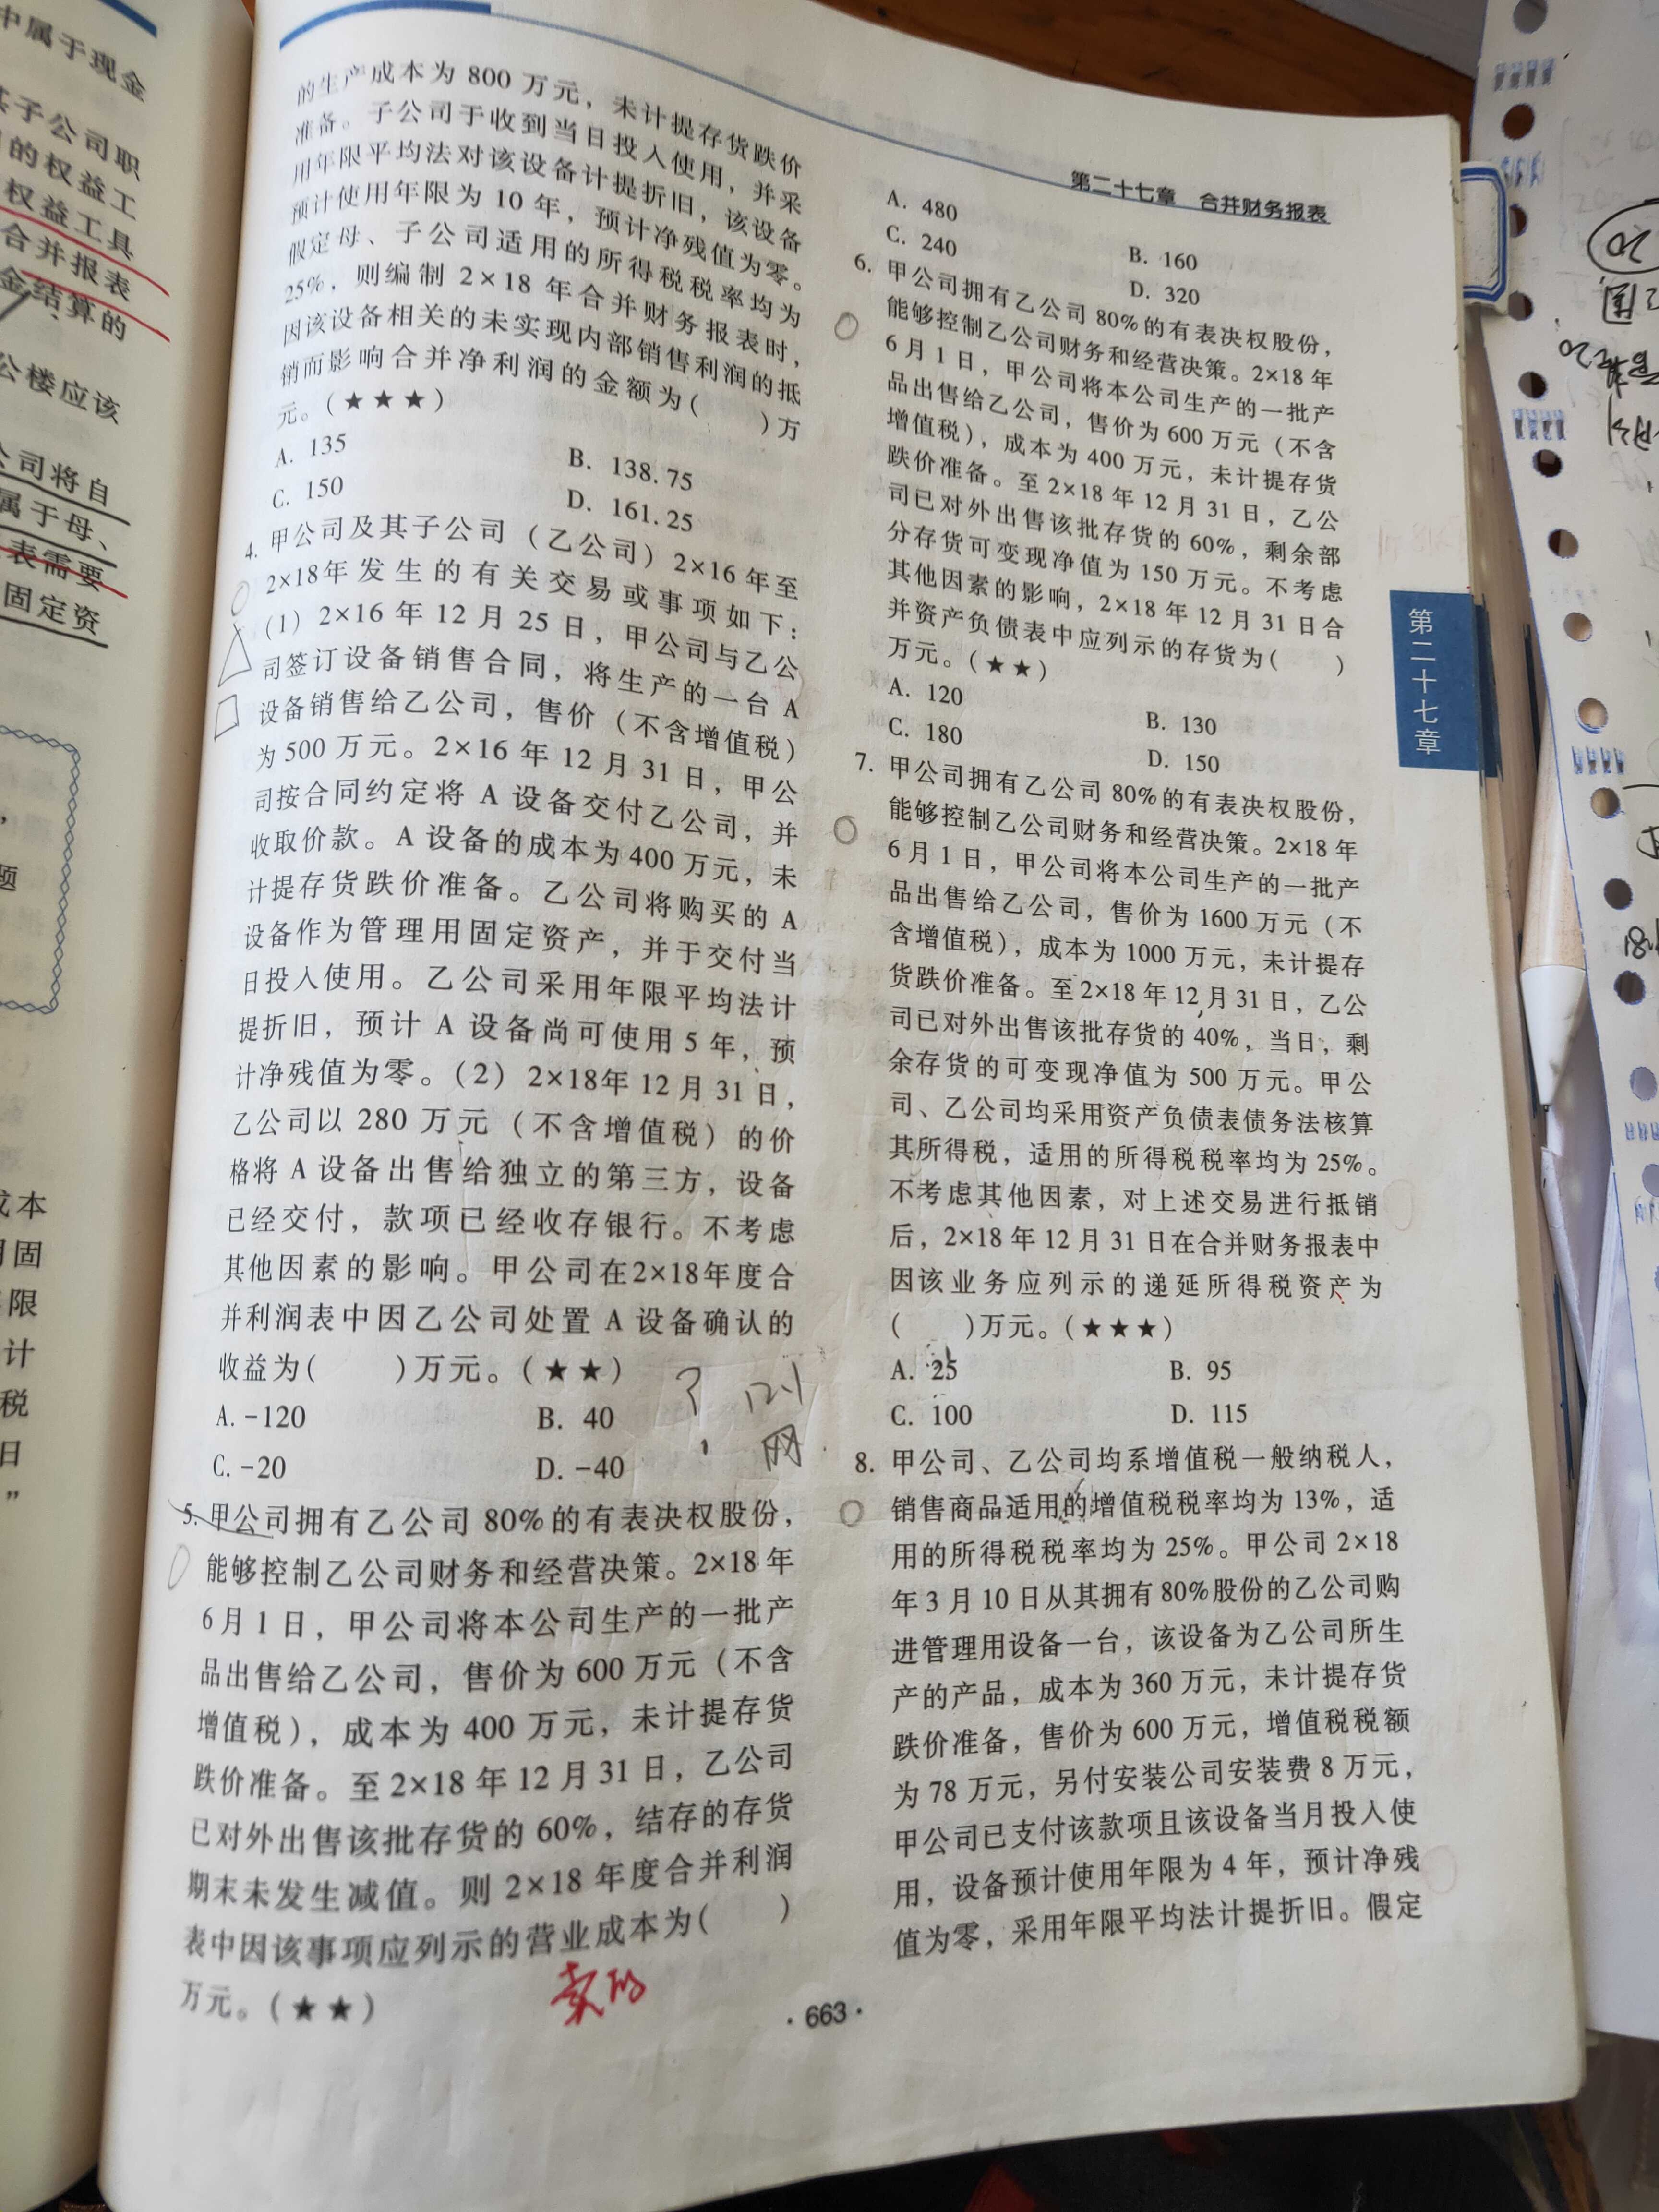 中属于现金
其子公司职
的权益工
权益工具
合并报表
金结算的
公楼应该
公司将自
属于母、
表需要
固定资
题
成本
固
限
计
税
日
”
的生产成本为 800 万元，未计提存货跌价
准备。子公司于收到当日投入使用，并采
用年限平均法对该设备计提折旧，该设备
预计使用年限为 10 年，预计净残值为零。
假定母、子公司适用的所得税税率均为
25%，则编制 2×18 年合并财务报表时，
因该设备相关的未实现内部销售利润的抵
销而影响合并净利润的金额为( )万
元。(★★★)
A. 135
B. 138.75
C. 150
D. 161.25
4. 甲公司及其子公司（乙公司）2×16 年至
2×18年发生的有关交易或事项如下：
(1) 2×16 年 12 月 25 日，甲公司与乙公
司签订设备销售合同，将生产的一台 A
设备销售给乙公司，售价（不含增值税）
为 500 万元。2×16 年 12 月 31 日，甲公
司按合同约定将 A 设备交付乙公司，并
收取价款。A 设备的成本为 400 万元，未
计提存货跌价准备。乙公司将购买的 A
设备作为管理用固定资产，并于交付当
日投入使用。乙公司采用年限平均法计
提折旧，预计 A 设备尚可使用 5 年，预
计净残值为零。(2) 2×18年 12 月 31 日，
乙公司以 280 万元（不含增值税）的价
格将 A 设备出售给独立的第三方，设备
已经交付，款项已经收存银行。不考虑
其他因素的影响。甲公司在2×18年度合
并利润表中因乙公司处置 A 设备确认的
收益为( )万元。(★★)
A. -120
B. 40
C. -20
D. -40
5. 甲公司拥有乙公司 80%的有表决权股份，
能够控制乙公司财务和经营决策。2×18 年
6 月 1 日，甲公司将本公司生产的一批产
品出售给乙公司，售价为 600 万元（不含
增值税），成本为 400 万元，未计提存货
跌价准备。至 2×18 年 12 月 31 日，乙公司
已对外出售该批存货的 60%，结存的存货
期末未发生减值。则 2×18 年度合并利润
表中因该事项应列示的营业成本为( )
万元。(★★)
卖的
第二十七章 合并财务报表
A. 480
B. 160
C. 240
D. 320
6. 甲公司拥有乙公司 80%的有表决权股份，
能够控制乙公司财务和经营决策。2×18 年
6 月 1 日，甲公司将本公司生产的一批产
品出售给乙公司，售价为 600 万元（不含
增值税），成本为 400 万元，未计提存货
跌价准备。至 2×18 年 12 月 31 日，乙公
司已对外出售该批存货的 60%，剩余部
分存货可变现净值为 150 万元。不考虑
其他因素的影响，2×18 年 12 月 31 日合
并资产负债表中应列示的存货为( )
万元。(★★)
A. 120
B. 130
C. 180
D. 150
7. 甲公司拥有乙公司 80%的有表决权股份，
能够控制乙公司财务和经营决策。2×18 年
6 月 1 日，甲公司将本公司生产的一批产
品出售给乙公司，售价为 1600 万元（不
含增值税），成本为 1000 万元，未计提存
货跌价准备。至 2×18 年 12 月 31 日，乙公
司已对外出售该批存货的 40%，当日，剩
余存货的可变现净值为 500 万元。甲公
司、乙公司均采用资产负债表债务法核算
其所得税，适用的所得税税率均为 25%。
不考虑其他因素，对上述交易进行抵销
后，2×18 年 12 月 31 日在合并财务报表中
因该业务应列示的递延所得税资产为
( )万元。(★★★)
A. 25
B. 95
C. 100
D. 115
8. 甲公司、乙公司均系增值税一般纳税人，
销售商品适用的增值税税率均为 13%，适
用的所得税税率均为 25%。甲公司 2×18
年 3 月 10 日从其拥有 80%股份的乙公司购
进管理用设备一台，该设备为乙公司所生
产的产品，成本为 360 万元，未计提存货
跌价准备，售价为 600 万元，增值税税额
为 78 万元，另付安装公司安装费 8 万元，
甲公司已支付该款项且该设备当月投入使
用，设备预计使用年限为 4 年，预计净残
值为零，采用年限平均法计提折旧。假定
·663·
第二十七章